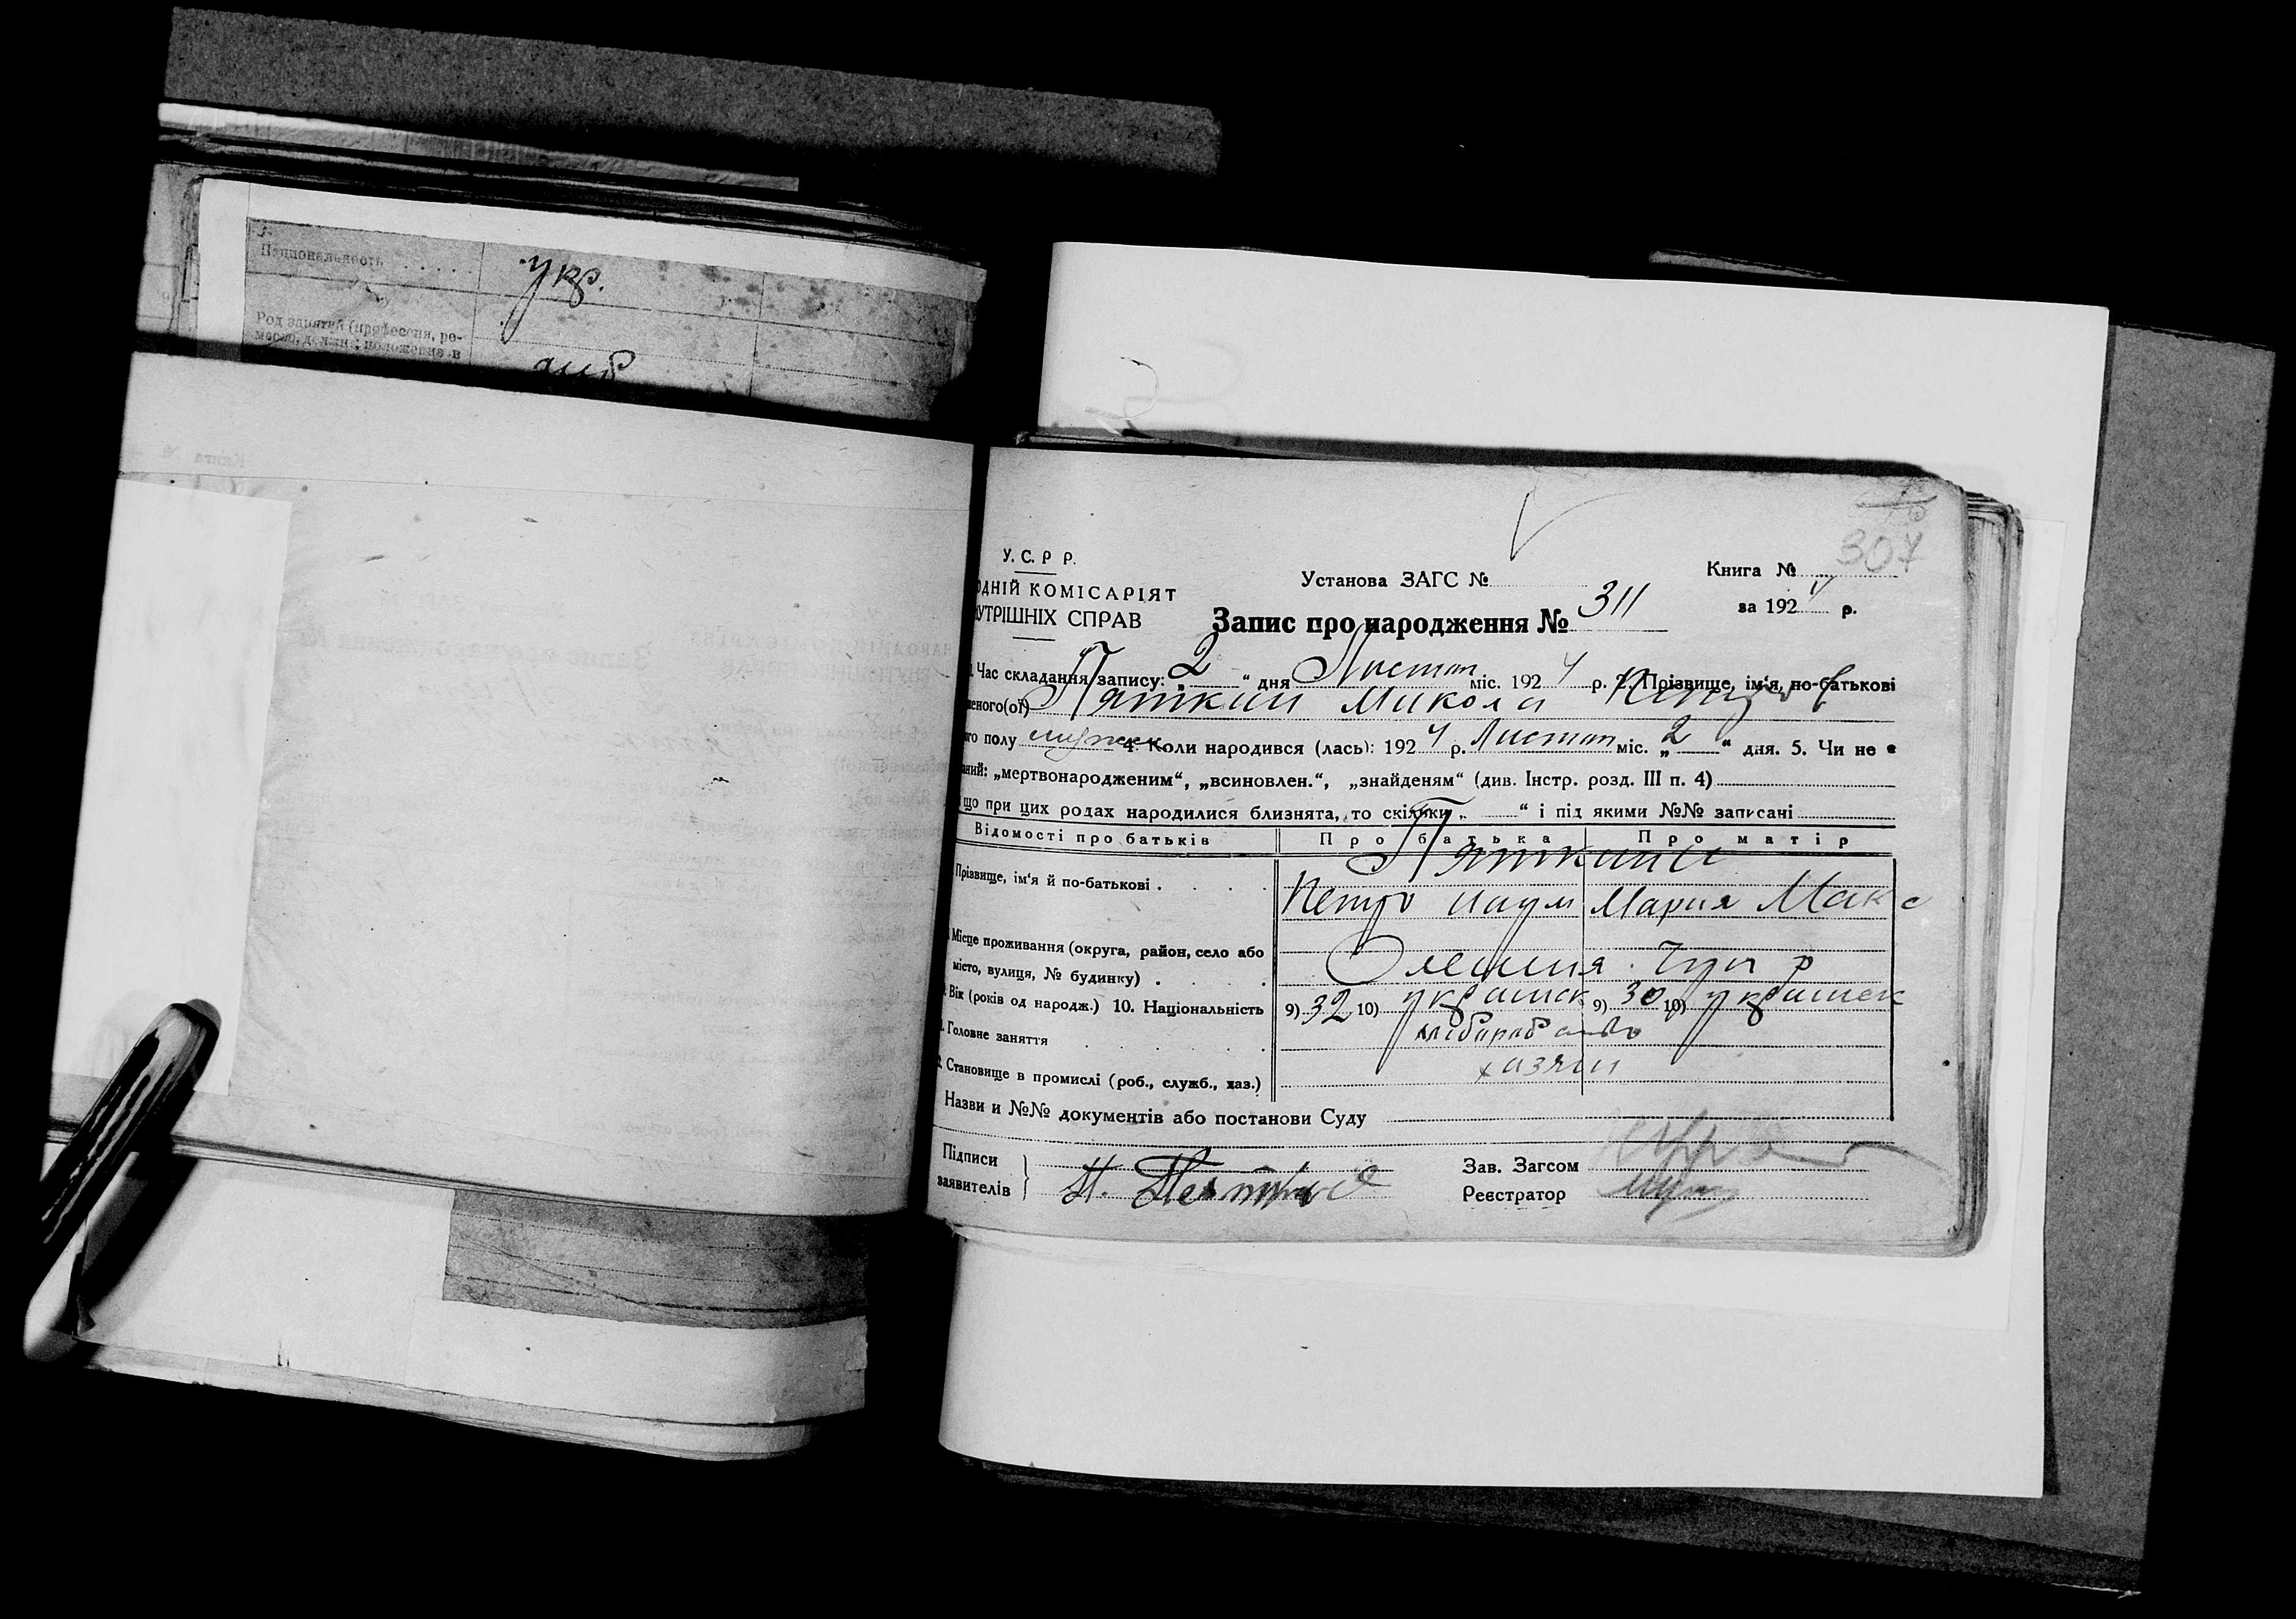 Национальность . . . . . укр.
Род занятий (професси, ре-
месло, должн., положение в
У. С. Р Р.
ОДНІЙ КОМІСАРІЯТ
УТРІШНІХ СПРАВ
Установа ЗАГС №
Книга №
307
за 1924 р.
Запис про народження № 311
Час складання запису: „2“ дня Листоп міс. 1924 р. 2. Прізвище, ім'я, по-батькові
еного(ої) Пяткин Микола
го полу мужеск 4. Коли народився (лась): 1924 р. Листоп міс. „2“ дня. 5. Чи не є
аний: „мертвонародженим“, „всиновлен.“, „знайденям“ (див. Інстр. розд. III п. 4)
що при цих родах народилися близнята, то скільки „ “ і під якими №№ записані
Відомості про батьків Про батька Про матір
Прізвище, ім'я й по-батькові . . . . Пяткини
Петро Наум Мария Макс
Місце проживання (округа, район, село або
місто, вулиця, № будинку) . . . . Олешня
Вік (років од народж.) 10. Національність 9) 32 10) украинск 9) 30 10) украинск
Головне заняття . . . . хлібороб
Становище в промислі (роб., служб., хаз.) хазяин
Назви и №№ документів або постанови Суду
Підписи
заявителів
Зав. Загсом
Реєстратор